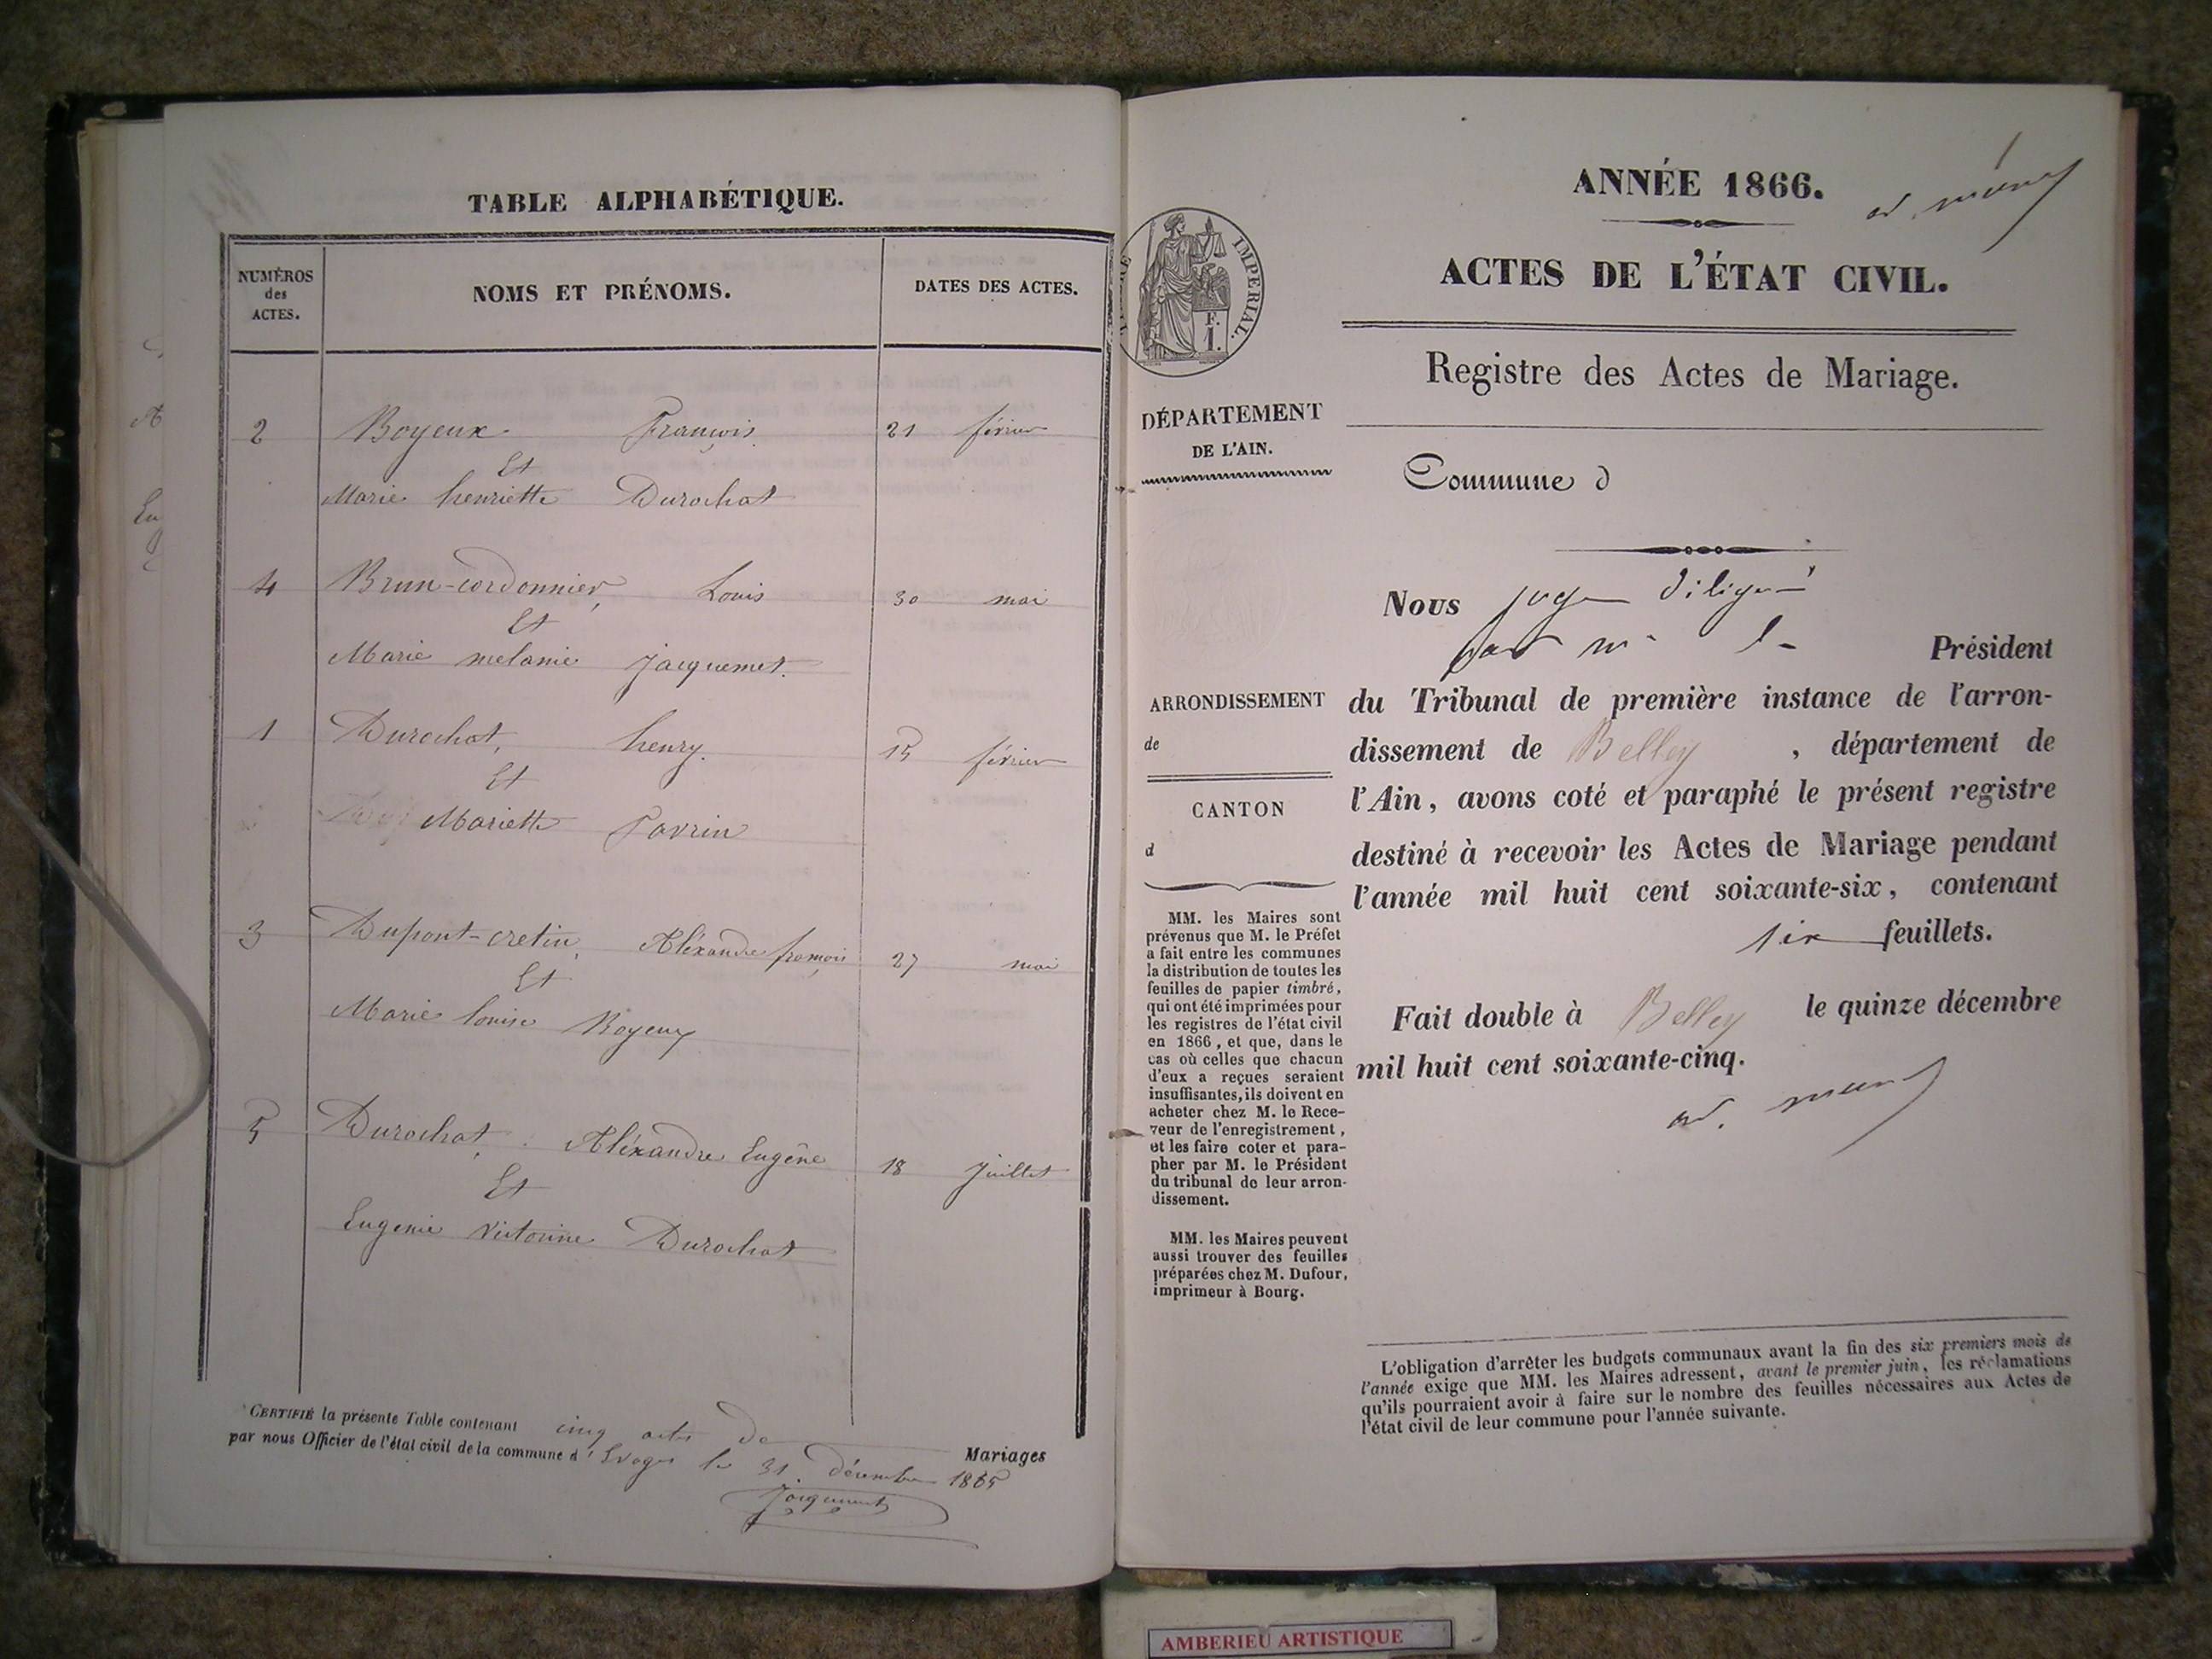 TABLE ALPHABÉTIQUE.
NUMÉROS
des
ACTES.
NOMS ET PRÉNOMS.
DATES DES ACTES.
2 Boyeux François. 21 février
Et
Marie henriette Durochat
4 Brun-cordonnier, Louis 30 mai
Et
Marie melanie Jacquemet.
1 Durochat, henry. 15 février
Et
Mariette Savrin
3 Dupont-cretin, Aléxandre françois 27 mai
Et
Marie louise Boyeux
5 Durochat, Aléxandre Eugêne 18 Juillet
Et
Eugenie victorine Durochat
CERTIFIÉ la présente Table contenant cinq actes de Mariages
par nous Officier de l'état civil de la commune d'Evoges le 31. décembre 1865
Jacquemet
ANNÉE 1866.
ACTES DE L'ÉTAT CIVIL.
IMPERIAL.
F.
1.
Registre des Actes de Mariage.
DÉPARTEMENT
DE L'AIN.
Commune d
Nous juge
par mr le Président
ARRONDISSEMENT
de
CANTON
d
du Tribunal de première instance de l'arron-
dissement de Belley , département de
l'Ain, avons coté et paraphé le présent registre
destiné à recevoir les Actes de Mariage pendant
l'année mil huit cent soixante-six, contenant
six feuillets.
Fait double à Belley le quinze décembre
mil huit cent soixante-cinq.
MM. les Maires sont
prévenus que M. le Préfet
a fait entre les communes
la distribution de toutes les
feuilles de papier timbré,
qui ont été imprimées pour
les registres de l'état civil
en 1866, et que, dans le
cas où celles que chacun
d'eux a reçues seraient
insuffisantes, ils doivent en
acheter chez M. le Rece-
veur de l'enregistrement,
et les faire coter et para-
pher par M. le Président
du tribunal de leur arron-
dissement.
MM. les Maires peuvent
aussi trouver des feuilles
préparées chez M. Dufour,
imprimeur à Bourg.
L'obligation d'arrêter les budgets communaux avant la fin des six premiers mois de
l'année exige que MM. les Maires adressent, avant le premier juin, les réclamations
qu'ils pourraient avoir à faire sur le nombre des feuilles nécessaires aux Actes de
l'état civil de leur commune pour l'année suivante.
AMBERIEU ARTISTIQUE